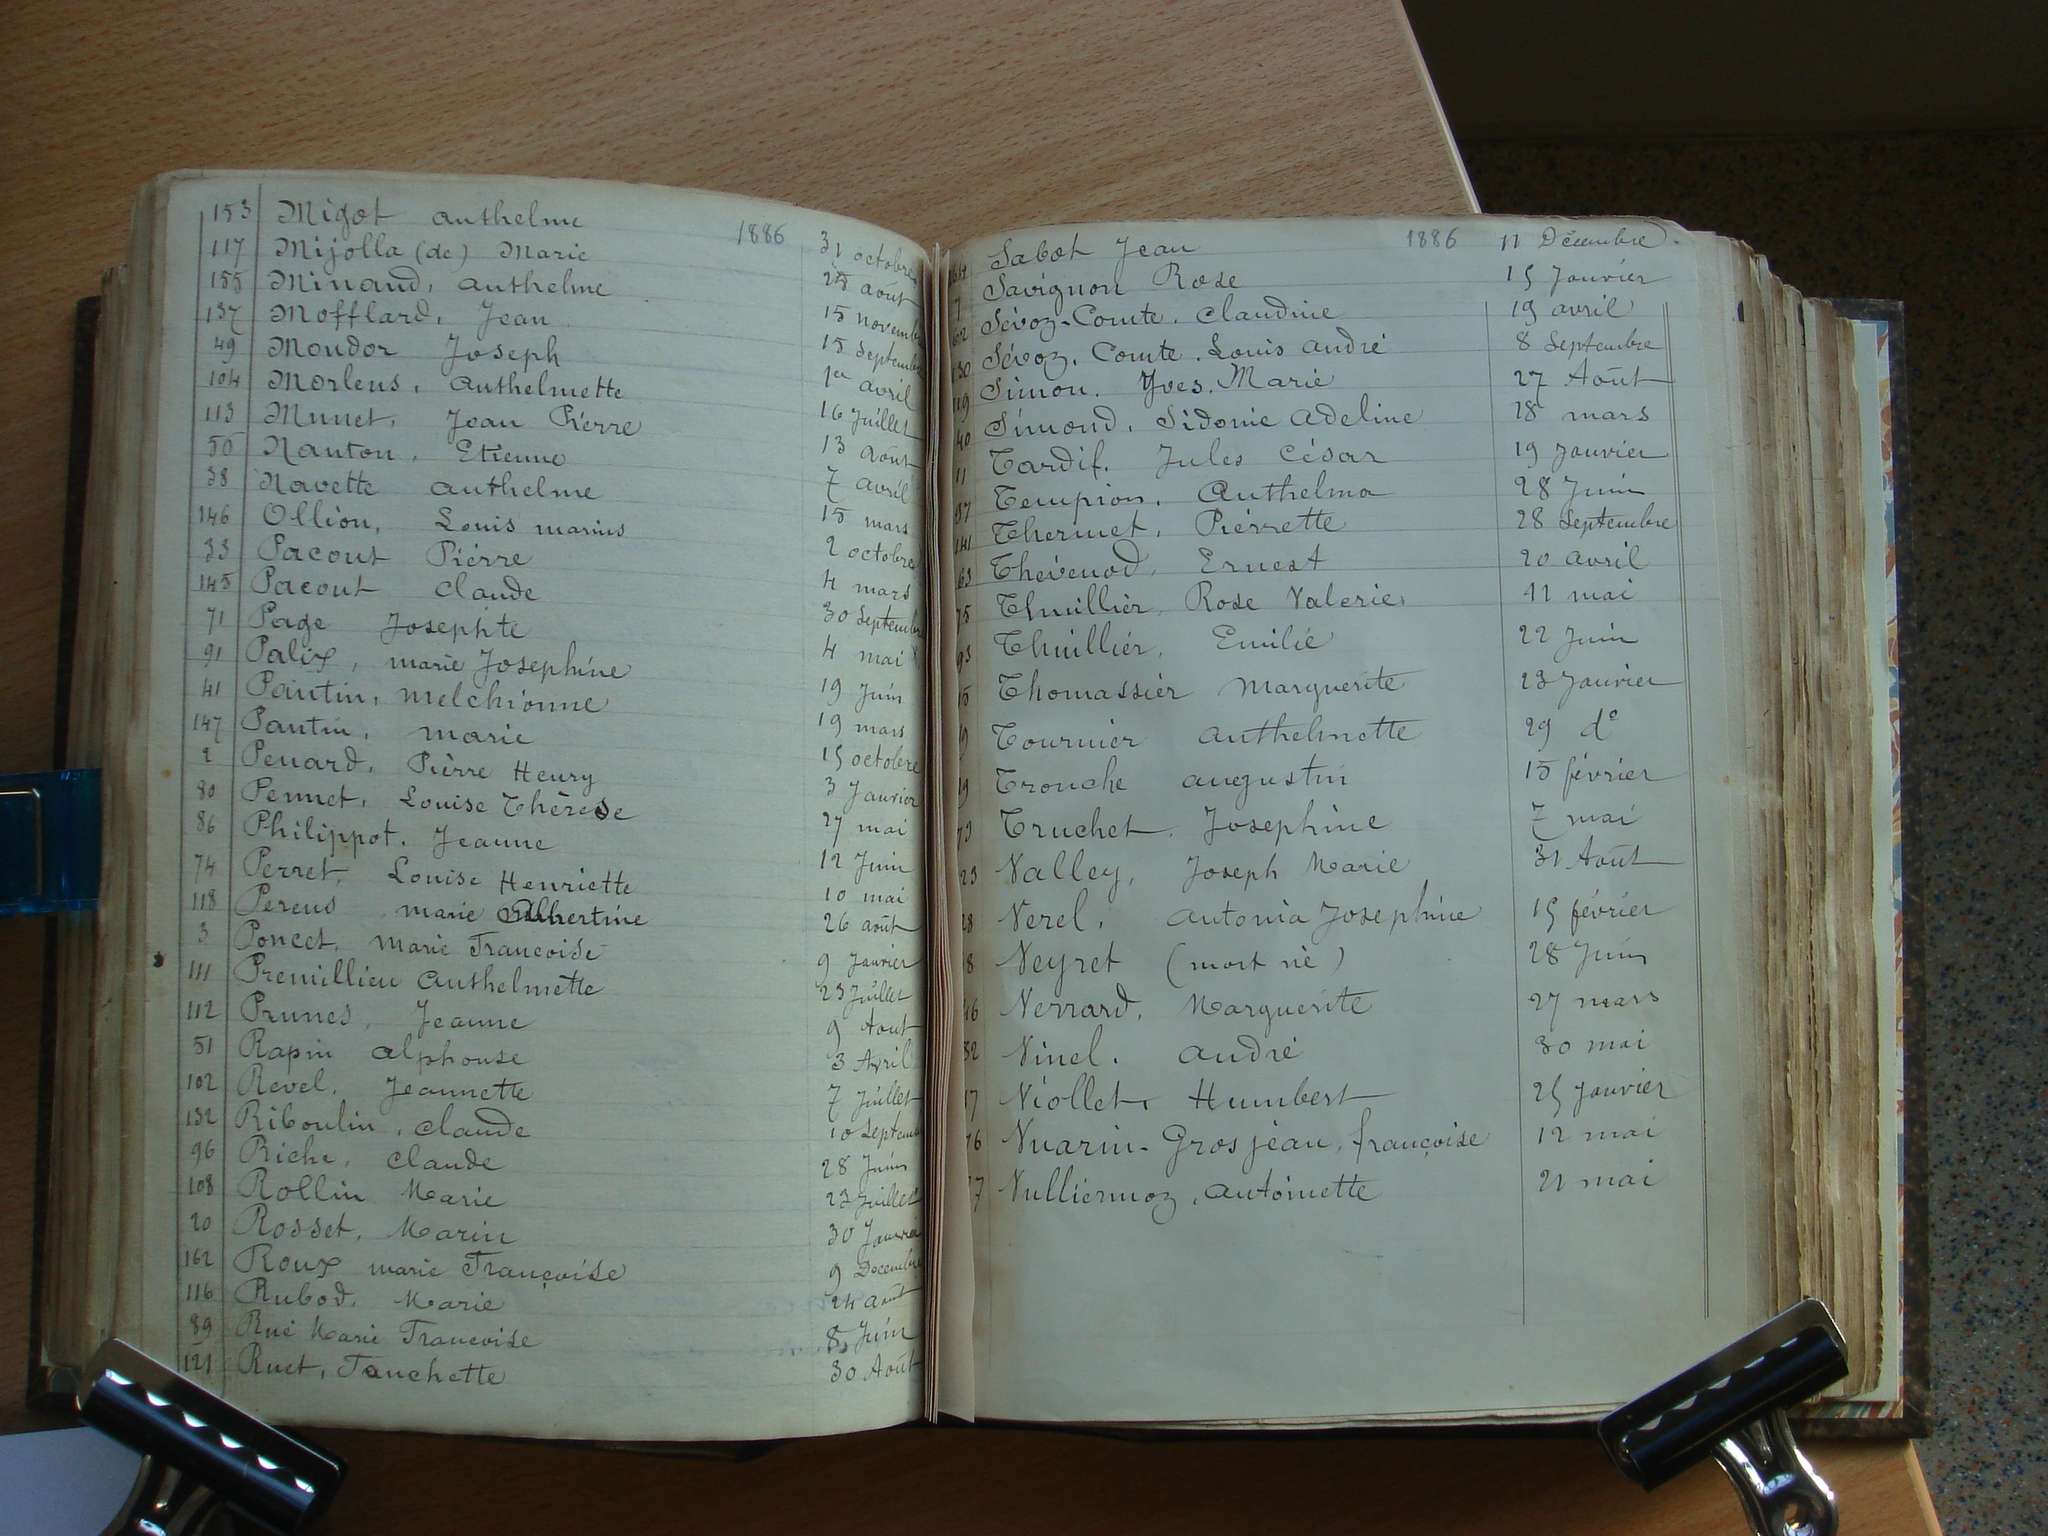 153 Migot anthelme 1886 31 octobre
117 Mijolla (de) Marie 25 août
155 Minaud, anthelme 15 novemb
137 Mofflard, Jean 15 Septemb
49 Moudor Joseph 1er avril
104 Morlens, anthelmette 16 Juillet
113 Munet, Jean Pierre 13 août
50 Nanton, Etienne 7 avril
38 Navette anthelme 15 mars
146 Ollion, Louis marius 2 octobre
33 Pacout Pierre 4 mars
145 Pacout claude 30 Septembre
71 Page Josephte 4 mai
91 Palix, marie Josephine 19 Juin
41 Pantin, melchionne 19 mars
147 Pantin, marie 15 octobre
2 Penard, Pierre Henry 3 Janvier
80 Pennet, Louise Thérèse 27 mai
86 Philippot, Jeanne 12 Juin
74 Perret, Louise Henriette 10 mai
118 Pereus marie Albertine 26 août
3 Poncet, marie Francoise 9 Janvier
111 Premillieu anthelmette 23 Juillet
112 Prunes, Jeanne 9 Aout
51 Rapin alphonse 3 Avril
102 Revel, Jeannette 7 Juillet
132 Riboulin, claude 10 Septemb
96 Riche, claude 28 Juin
108 Rollin Marie 23 Juillet
20 Rosset, Marin 30 Janvier
162 Roux marie Françoise 9 Decembre
116 Rubod, Marie 24 août
89 Rué Marie Francoise 8 Juin
121 Ruet, Fanchette 30 Août
Sabot Jean 1886 11 Décembre.
7 Savignon Rose 15 Janvier
62 Sévoz-Comte, claudine 19 avril
130 Sévoz, Comte, Louis andré 8 Septembre
119 Simon, Yves, Marie 27 Août
40 Simond, Sidonie adeline 18 mars
11 Tardif, Jules César 19 Janvier
97 Tempion, Anthelma 28 Juin
141 Thermet, Pierrette 28 Septembre
63 Thévenod, Ernest 20 avril
75 Thuillier, Rose Valerie, 11 mai
93 Thuillier, Emilie 22 Juin
15 Thomassier Marguerite 23 Janvier
9 Tournier anthelmette 29 do
9 Trouche augustin 15 février
73 Truchet, Josephine 7 mai
23 Valley, Joseph Marie 31 Août
28 Verel, antonia Josephine 15 février
8 Veyret (mort né) 28 Juin
46 Verrard, Marguerite 27 mars
82 Vinel, andré 30 mai
17 Viollet, Humbert 25 Janvier
76 Vuarin-Grosjéan, françoise 12 mai
77 Vulliermoz, antoinette 21 mai